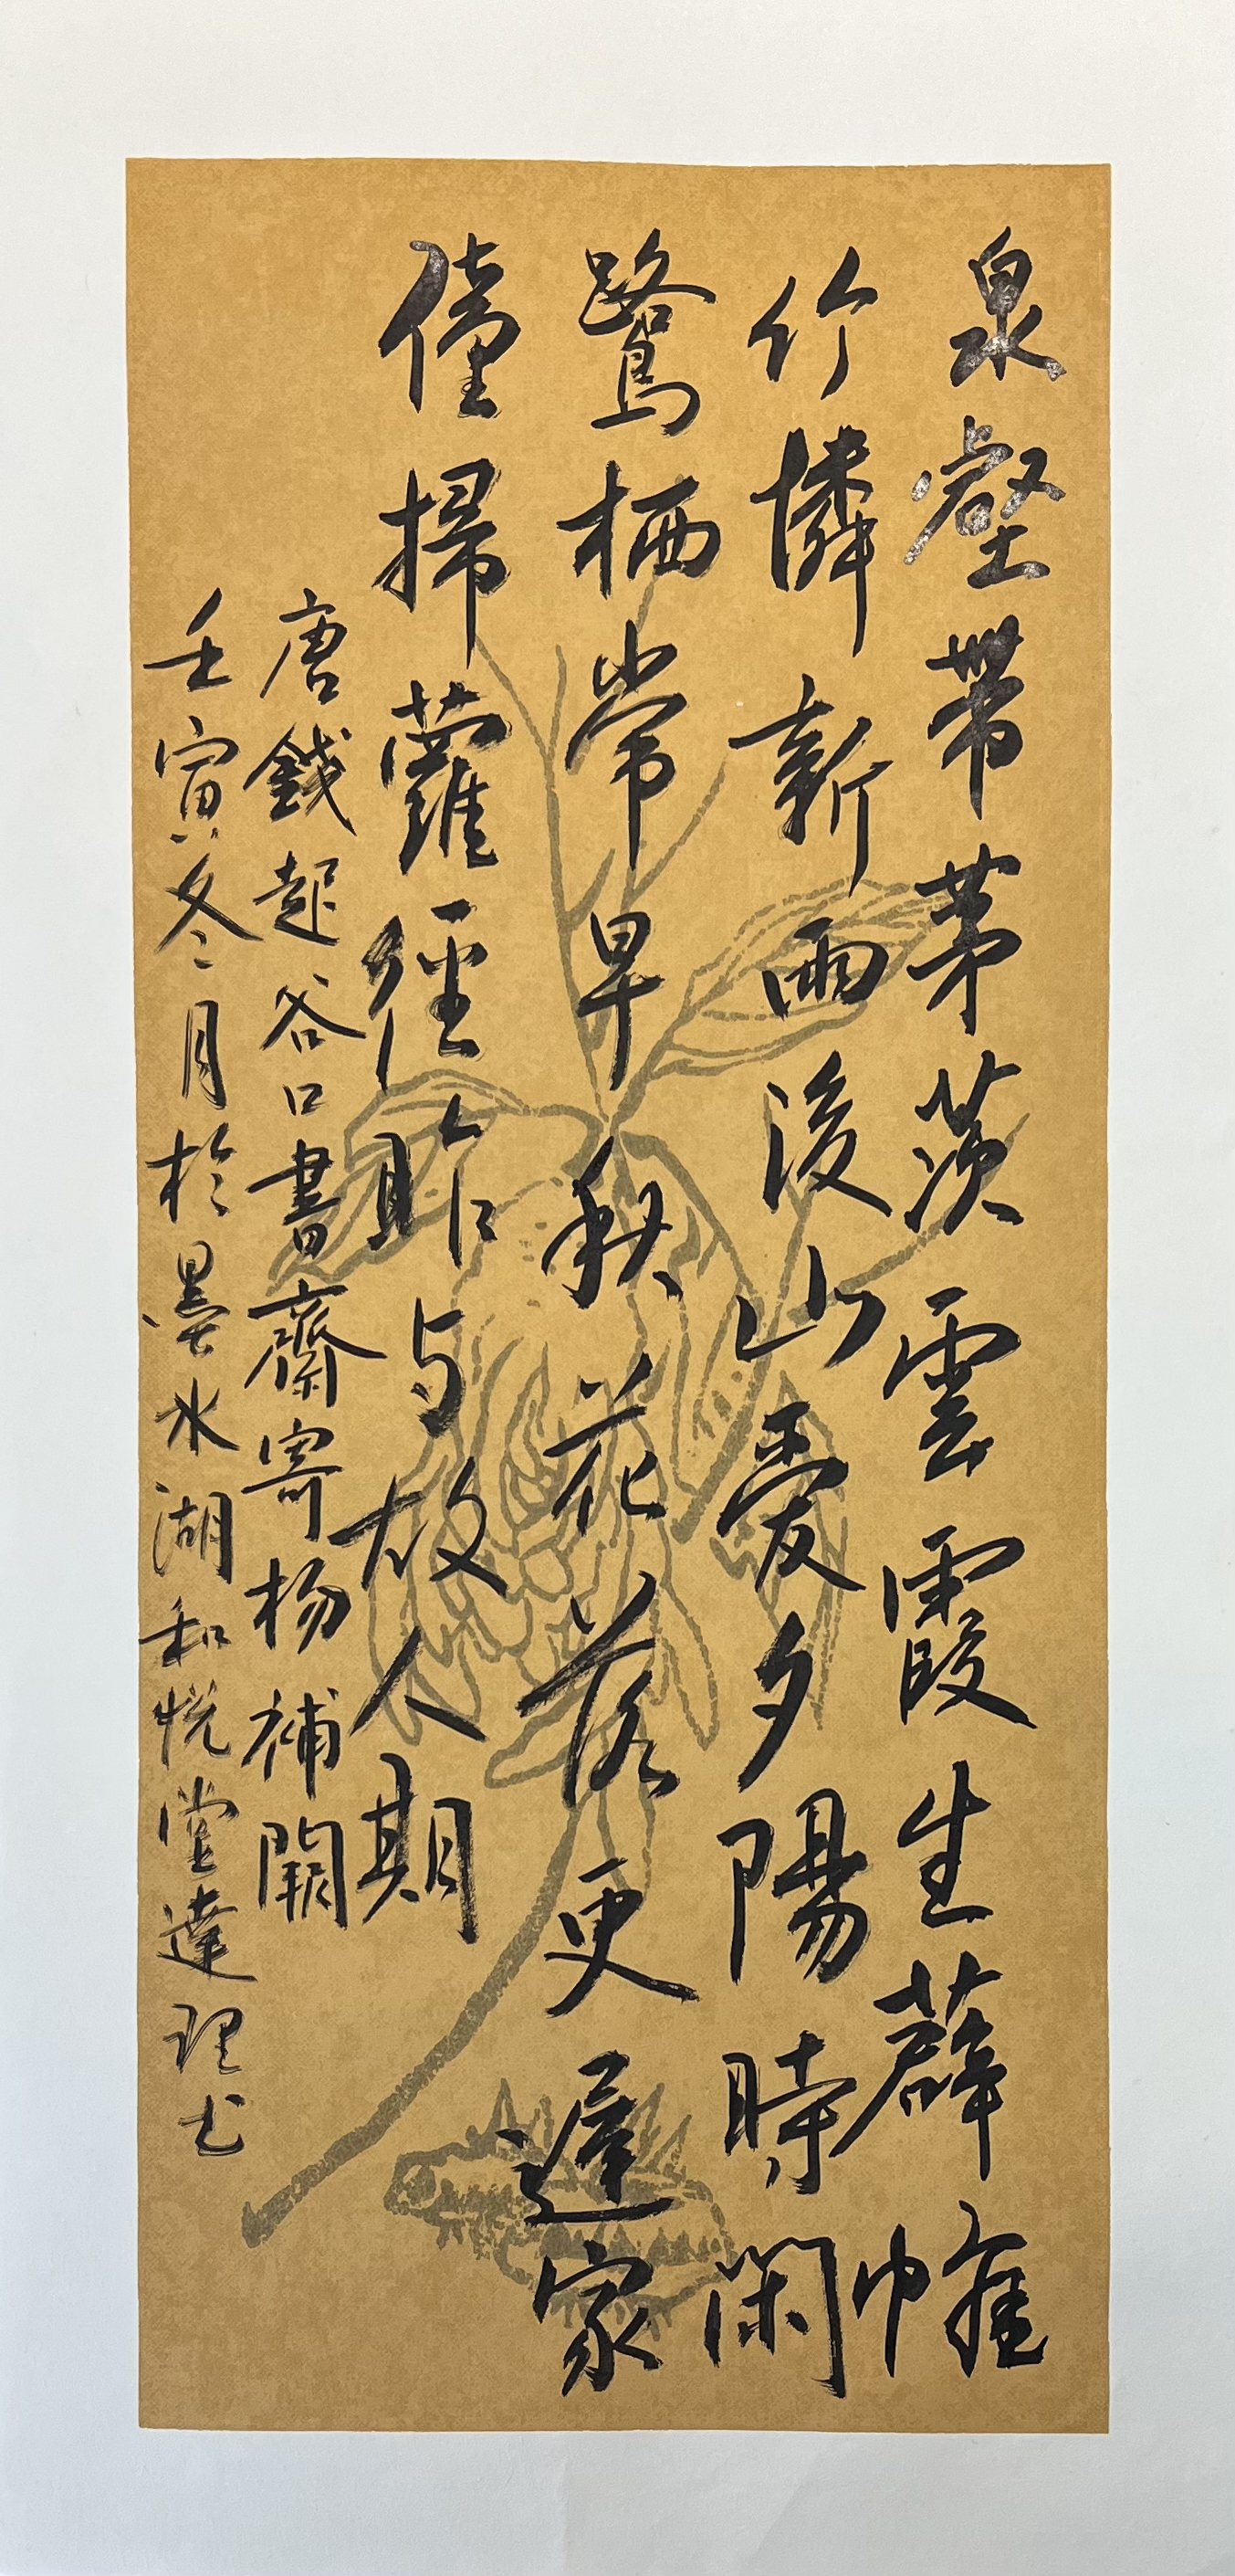 泉壑帶茅茨雲霞生薜帷
竹憐新雨後山愛夕陽時閑
鷺栖常早秋花落更遲家
僮掃蘿徑昨与故人期
唐錢起谷口書齋寄杨補闕
壬寅冬月於墨水湖和悦堂達理书